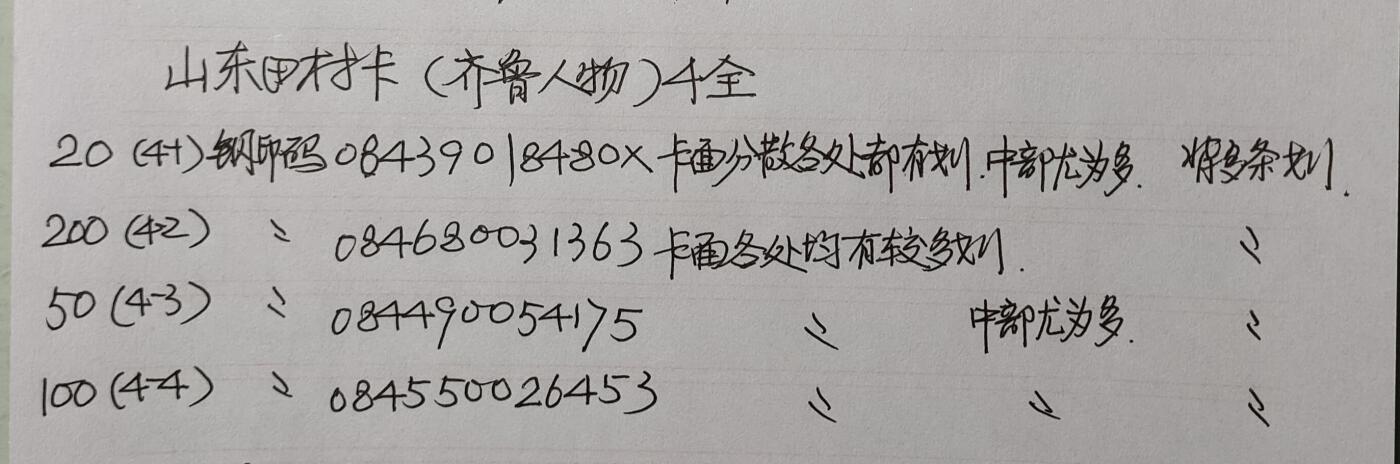 山东田村卡(齐鲁人物)4全
20 (4-1) 钢印码 08439018480X 卡面分散各处都有划.中部尤为多. 背多条划.
200 (4-2) 〃 084680031363 卡面各处均有较多划. 〃
50 (4-3) 〃 084490054175 〃 中部尤为多. 〃
100 (4-4) 〃 084550026453 〃 〃 〃